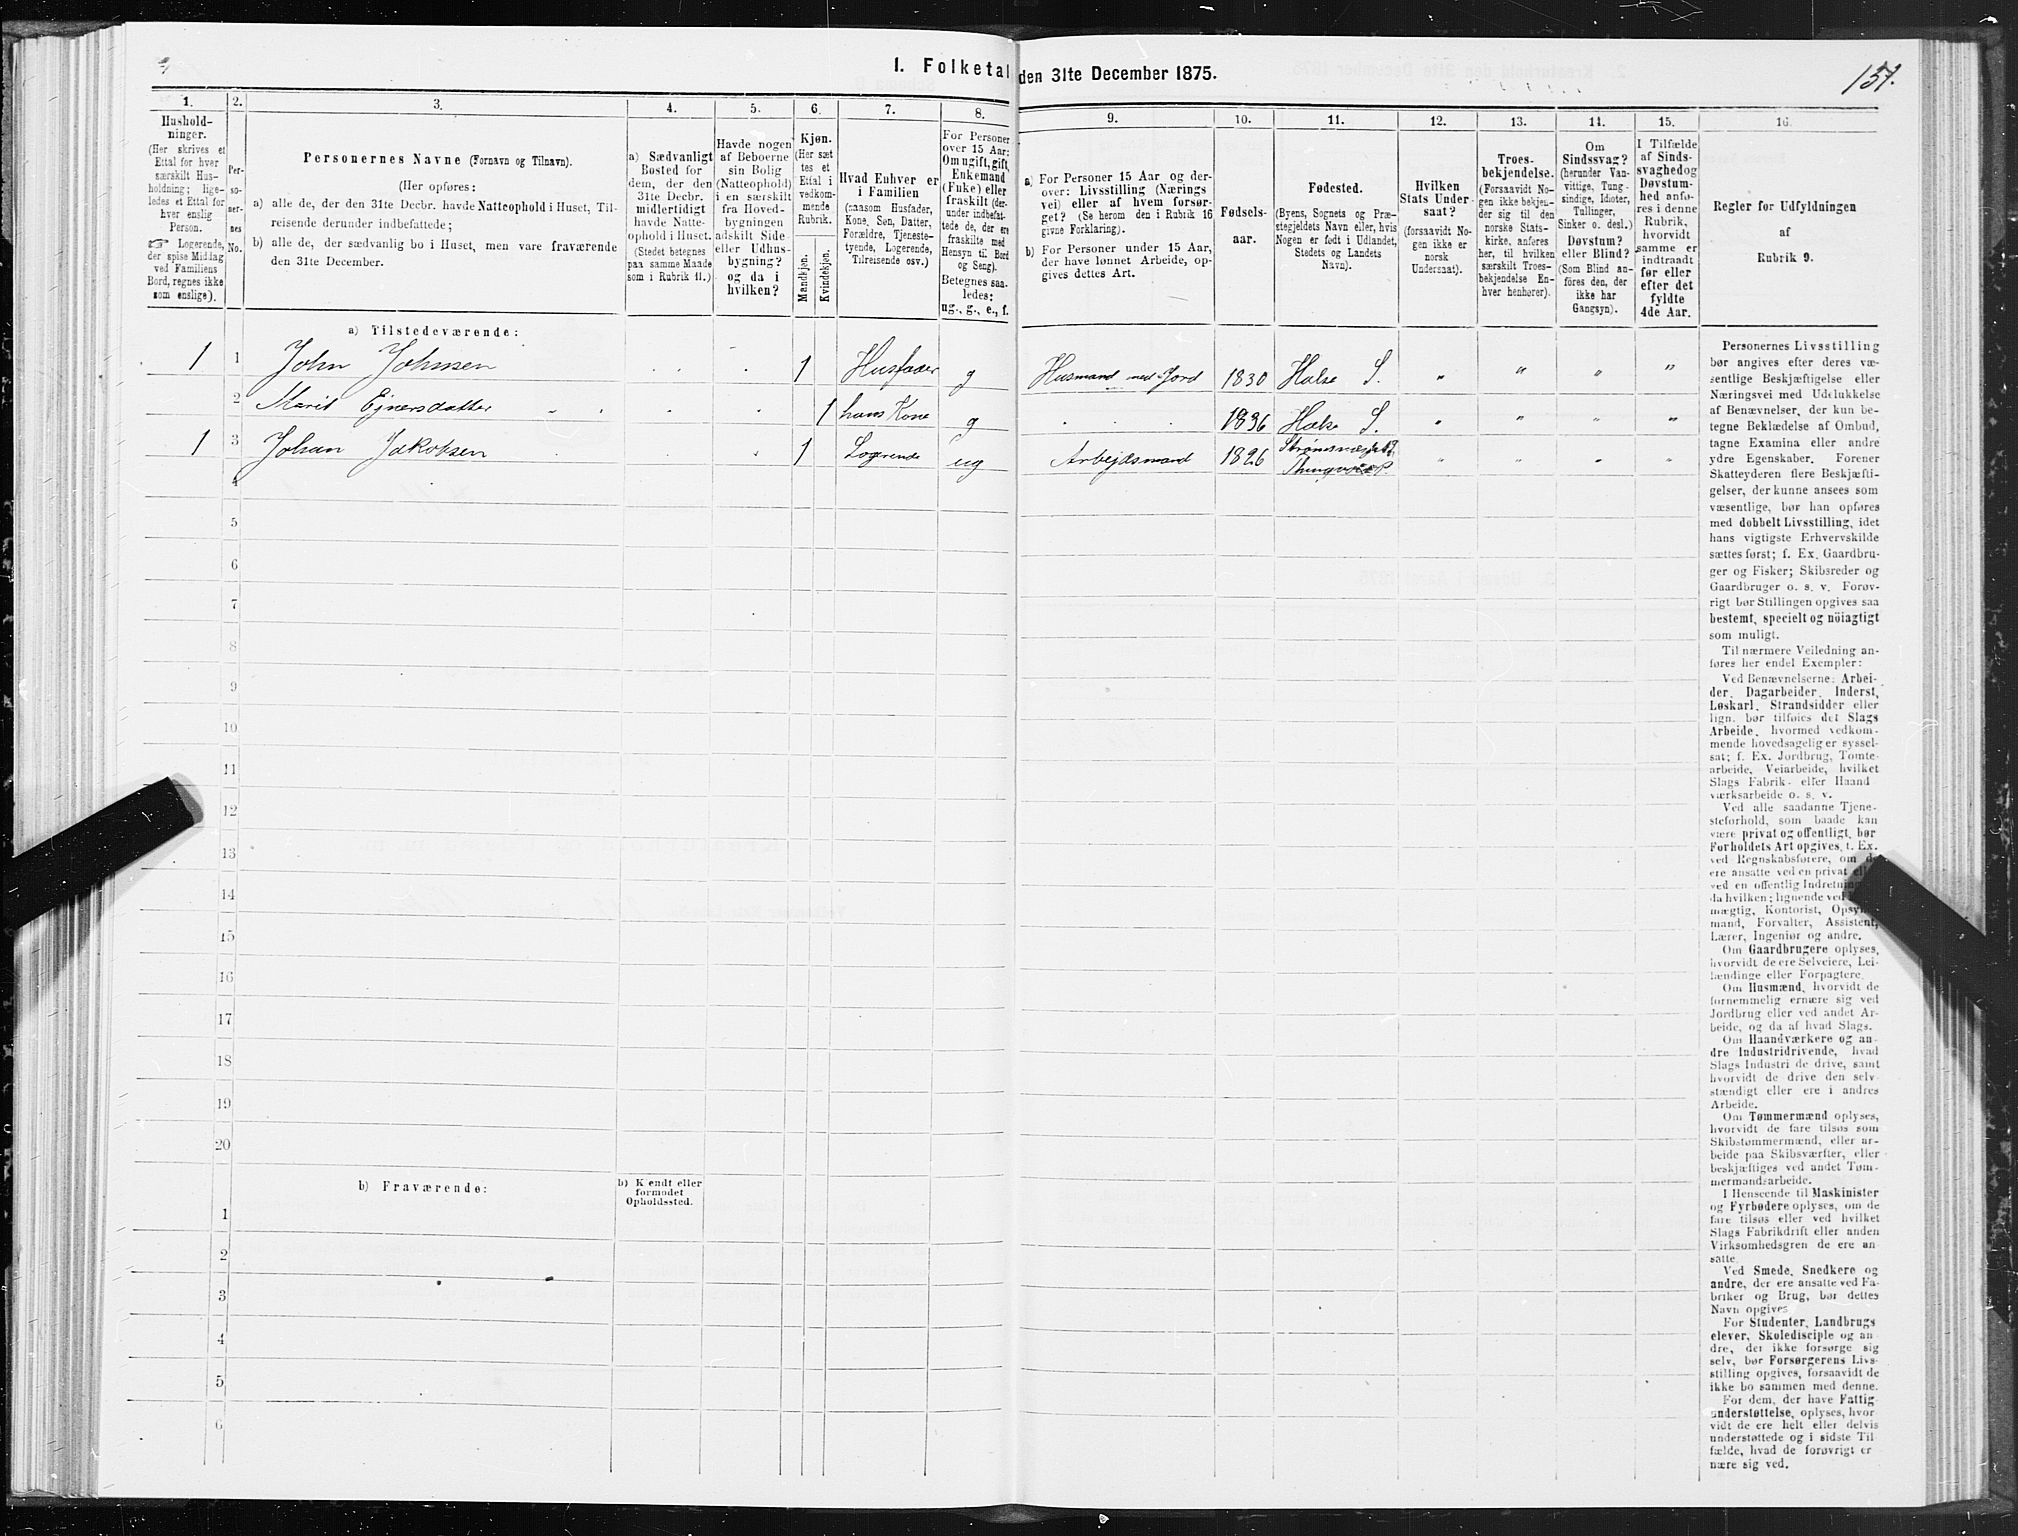 I. Folketal den 31te December 1875.
151.
1.
2.
3.
4.
5.
6.
7.
8.
9.
10.
11.
12.
13.
14.
15.
16.
Hushold-
ninger.
(Her skrives et
Ettal for hver
særskilt Hus-
holdning; lige-
ledes et Ettal for
hver enslig
Person.
☞ Logerende,
der spise Middag
ved Familiens
Bord, regnes ikke
som enslige).
Per-
so-
ner-
nes
No.
Personernes Navne (Fornavn og Tilnavn).
(Her opføres:
a) alle de, der den 31te Decbr. havde Natteophold i Huset, Til-
reisende derunder indbefattede;
b) alle de, der sædvanlig bo i Huset, men vare fraværende
den 31te December.
a) Sædvanligt
Bosted for
dem, der den
31te Decbr.
midlertidigt
havde Natte-
ophold i Huset.
(Stedet betegnes
paa samme Maade
som i Rubrik 11.)
Havde nogen
af Beboerne
sin Bolig
(Natteophold)
i en særskilt
fra Hoved-
bygningen
adskilt Side-
eller Udhus-
bygning?
og da i
hvilken?
Kjøn.
(Her sæt-
tes et
Ettal i
vedkom-
mende
Rubrik.
Mandkjøn.
Kvindekjøn.
Hvad Enhver er
i Familien
(saasom Husfader,
Kone, Søn, Datter,
Forældre, Tjeneste-
tyende, Logerende,
Tilreisende osv.)
For Personer
over 15 Aar:
Om ugift, gift,
Enkemand
(Enke) eller
fraskilt (der-
under indbefat-
tede de, der ere
fraskilte med
Hensyn til Bord
og Seng).
Betegnes saa-
ledes:
ug., g., e., f.
a) For Personer 15 Aar og der-
over: Livsstilling (Nærings-
vei) eller af hvem forsør-
get? (Se herom den i Rubrik 16
givne Forklaring).
b) For Personer under 15 Aar,
der have lønnet Arbeide, op-
gives dettes Art.
Fødsels-
aar.
Fødested.
(Byens, Sognets og Præ-
stegjeldets Navn eller, hvis
Nogen er født i Udlandet,
Stedets og Landets
Navn).
Hvilken
Stats Under-
saat?
(forsaavidt No-
gen ikke er
norsk
Undersaat).
Troes-
bekjendelse.
(Forsaavidt No-
gen ikke bekjen-
der sig til den
norske Stats-
kirke, anføres
her, til hvilken
særskilt Troes-
bekjendelse En-
hver henhører).
Om
Sindssvag?
(herunder Van-
vittige, Tung-
sindige, Idioter,
Tullinger,
Sinker o. desl.)
Døvstum?
eller Blind?
(Som Blind an-
føres den, der
ikke har
Gangsyn).
I Tilfælde
af Sinds-
svaghed og
Døvstum-
hed anfø-
res i denne
Rubrik,
hvorvidt
samme er
indtraadt
før eller
efter det
fyldte
4de Aar.
Regler for Udfyldningen
af
Rubrik 9.
a) Tilstedeværende:
1 1 John Johnsen 1 Husfader g Husmand med Jord 1830 Halse S. " " " "
2 Marit Ejnersdatter 1 hans Kone g 1836 Halse S. " " " "
1 3 Johan Jakobsen 1 Logerende ug Arbejdsmand 1826
4
5
6
7
8
9
10
11
12
13
14
15
16
17
18
19
20
b) Fraværende:
b) Kjendt eller
formodet
Opholdssted.
1
2
3
4
5
6
Personernes Livsstilling
bør angives efter deres væ-
sentlige Beskjæftigelse eller
Næringsvei med Udelukkelse
af Benævnelser, der kun be-
tegne Beklædelse af Ombud,
tagne Examina eller andre
ydre Egenskaber. Forener
Skatteyderen flere Beskjæfti-
gelser, der kunne ansees som
væsentlige, bør han opføres
med dobbelt Livsstilling, idet
hans vigtigste Erhvervskilde
sættes først; f. Ex. Gaardbru-
ger og Fisker; Skibsreder og
Gaardbruger o. s. v. Forøv-
rigt bør Stillingen opgives saa
bestemt, specielt og nöiagtigt
som muligt.
Til nærmere Veiledning an-
føres her endel Exempler:
Ved Benævnelserne: Arbei-
der, Dagarbeider, Inderst,
Løskarl, Strandsidder eller
lign. bør tilføies det Slags
Arbeide, hvormed vedkom-
mende hovedsagelig er syssel-
sat; f. Ex. Jordbrug, Tomte-
arbeide, Veiarbeide, hvilket
Slags Fabrik- eller Haand-
værksarbeide o. s. v.
Ved alle saadanne Tjene-
steforhold, som baade kan
være privat og offentligt, bør
Forholdets Art opgives, f. Ex.
ved Regnskabsførere, om de
ere ansatte ved en privat
ved en offentlig Indretning
da hvilken; lignende ved
mægtig, Kontorist,
mand, Forvalter, Assistent,
Lærer, Ingeniør og andre.
Om Gaardbrugere oplyses,
hvorvidt de ere Selveiere, Lei-
lændinge eller Forpagtere.
Om Husmænd, hvorvidt de
fornemmelig ernære sig ved
Jordbrug eller ved andet Ar-
beide, og da af hvad Slags.
Om Haandværkere og an-
dre Industridrivende, hvad
Slags Industri de drive, samt
hvorvidt de drive den selv-
stændigt eller ere i andres
Arbeide.
Om Tømmermænd oplyses,
hvorvidt de fare tilsøs som
Skibstømmermænd, eller ar-
beide paa Skibsværfter, eller
beskjæftiges ved andet Tøm-
mermandsarbeide.
I Henseende til Maskinister
og Fyrbødere oplyses, om de
fare tilsøs eller ved hvilket
Slags Fabrikdrift eller anden
Virksomhedsgren de ere an-
satte.
Ved Smede, Snedkere og
andre, der ere ansatte ved Fa-
briker og Brug, bør dettes
Navn opgives.
For Studenter, Landbrugs-
elever, Skoledisciple og an-
dre, der ikke forsørge sig
selv, bør Forsørgerens Livs-
stilling opgives, forsaavidt de
ikke bo sammen med denne.
For dem, der have Fattig-
understøttelse, oplyses, hvor-
vidt de ere helt eller delvis
understøttede og i sidste Til-
fælde, hvad de forøvrigt er-
nære sig ved.